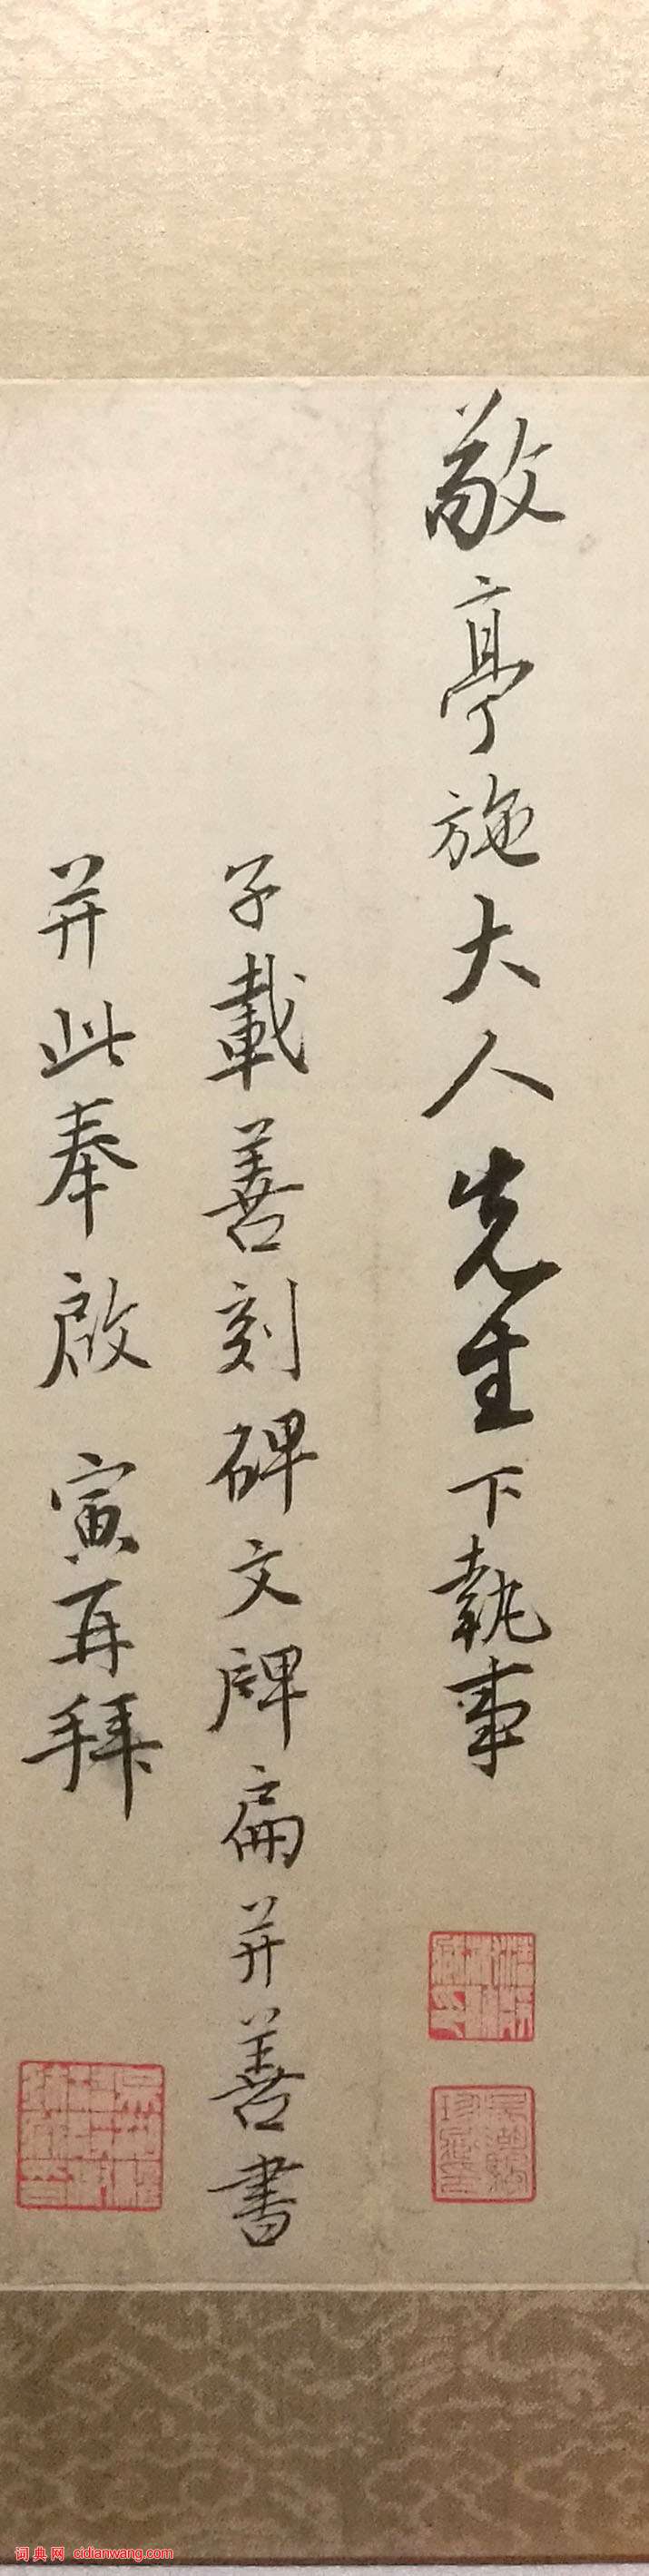 敬亭施大人先生下執事
子載善刻碑文牌扁并善書
并此奉啟 寅再拜
词典网 cidianwang.com